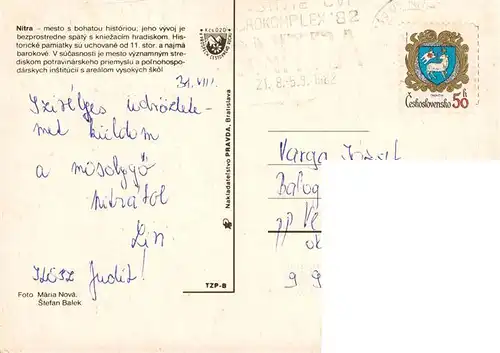 Nitra – mesto s bohatou históriou, jeho vývoj je
bezprostredne spätý s kniežacím hradiskom. His-
torické pamiatky sú uchované od 11. stor. a najmä
barokové. V súčasnosti je mesto významným stre-
diskom potravinárskeho priemyslu a poľnohospo-
dárskych inštitúcií s areálom vysokých škôl
31. VIII.
Szívélyes üdvözlete-
met küldöm
a mosolygó
Nitrától
Judit!
Foto Mária Nová,
Štefan Balek
TZP-B
Nakladateľstvo PRAVDA, Bratislava
Kčs 0,20
ROKOMPLEX '82
21. 8.-5. 9. 1982
Československo 50 h
Varga József
Balog
pp Ve
9 9